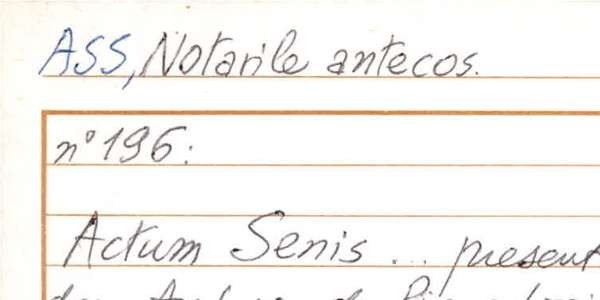 ASS, Notarile antecos.
n° 196:
Actum Senis ... present